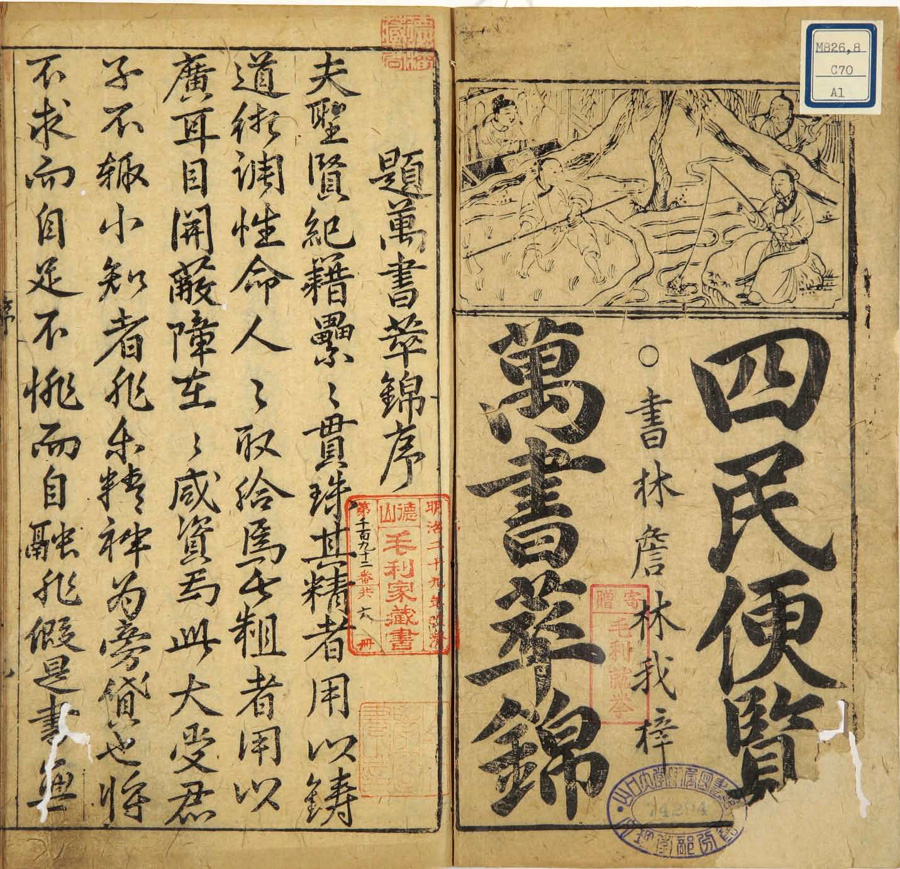 M826,8
C70
A1
四民便覧
○書林詹林我梓
萬書萃錦
寄贈
毛利就挙
題萬書萃錦序
夫聖賢紀籍纍〻貫珠其精者用以鑄
道術調性命人〻取給焉其粗者用以
廣耳目開蔽障在〻咸資焉此大受君
子不輙小知者非尔精神为旁貸也将
不求而自足不而自融非假是書無
明治二十九年改濟
德山
毛利家藏書
第千百九十二番共六冊